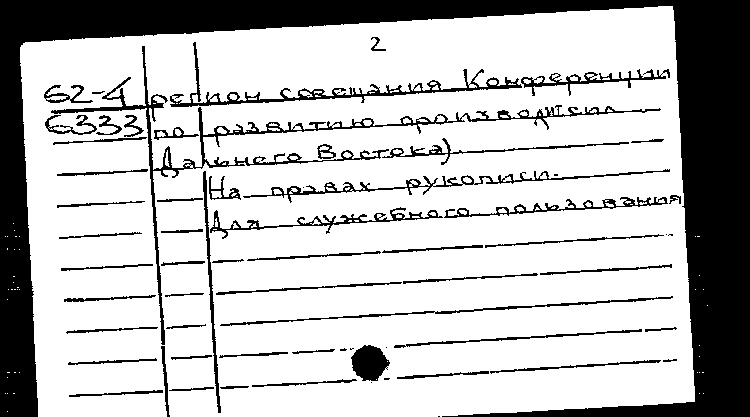 2
62-4 регион совещания Конференции
6333 по развитию производит. сил
Дальнего Востока).
На правах рукописи.
Для служебного пользования